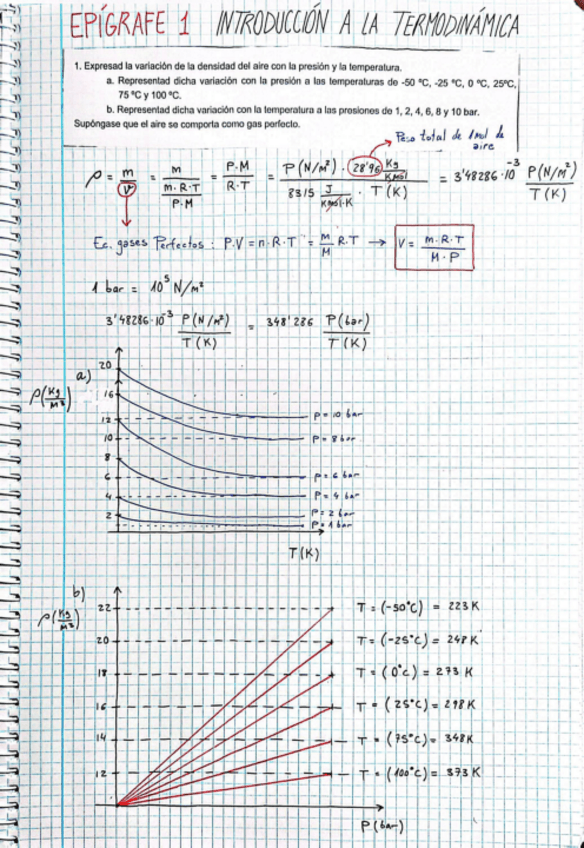 EPÍGRAFE 1 INTRODUCCIÓN A LA TERMODINÁMICA
1. Expresad la variación de la densidad del aire con la presión y la temperatura.
a. Representad dicha variación con la presión a las temperaturas de -50 ºC, -25 ºC, 0 ºC, 25ºC,
75 ºC y 100 ºC.
b. Representad dicha variación con la temperatura a las presiones de 1, 2, 4, 6, 8 y 10 bar.
Supóngase que el aire se comporta como gas perfecto.
Peso total de 1mol de
aire
ρ = m/V = m/(m·R·T/P·M) = P·M/R·T = P(N/m²) · 28'96 Kg/Kmol / 8315 J/Kmol·K · T(K) = 3'48286·10⁻³ P(N/m²)/T(K)
Ec. gases Perfectos : P·V = n·R·T = m/M R·T → V = m·R·T/M·P
1 bar = 10⁵ N/m²
3'48286·10⁻³ P(N/m²)/T(K) = 348'286 P(bar)/T(K)
a)
ρ(Kg/m³)
20
16
12
10
8
6
4
2
P = 10 bar
P = 8 bar
P = 6 bar
P = 4 bar
P = 2 bar
P = 1 bar
T(K)
b)
ρ(Kg/m³)
22
20
18
16
14
12
T = (-50°C) = 223 K
T = (-25°C) = 248 K
T = (0°C) = 273 K
T = (25°C) = 298 K
T = (75°C) = 348K
T = (100°C) = 373 K
P(bar)